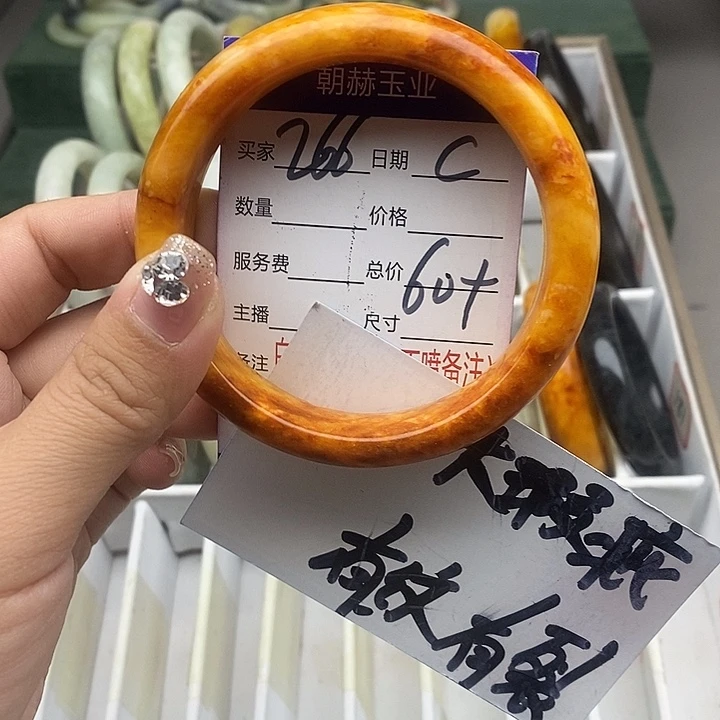 朝赫玉业
买家 266 日期 C
数量 价格
服务费 总价 60+
主播 尺寸
备注 喷备注
大瑕疵
有纹有裂